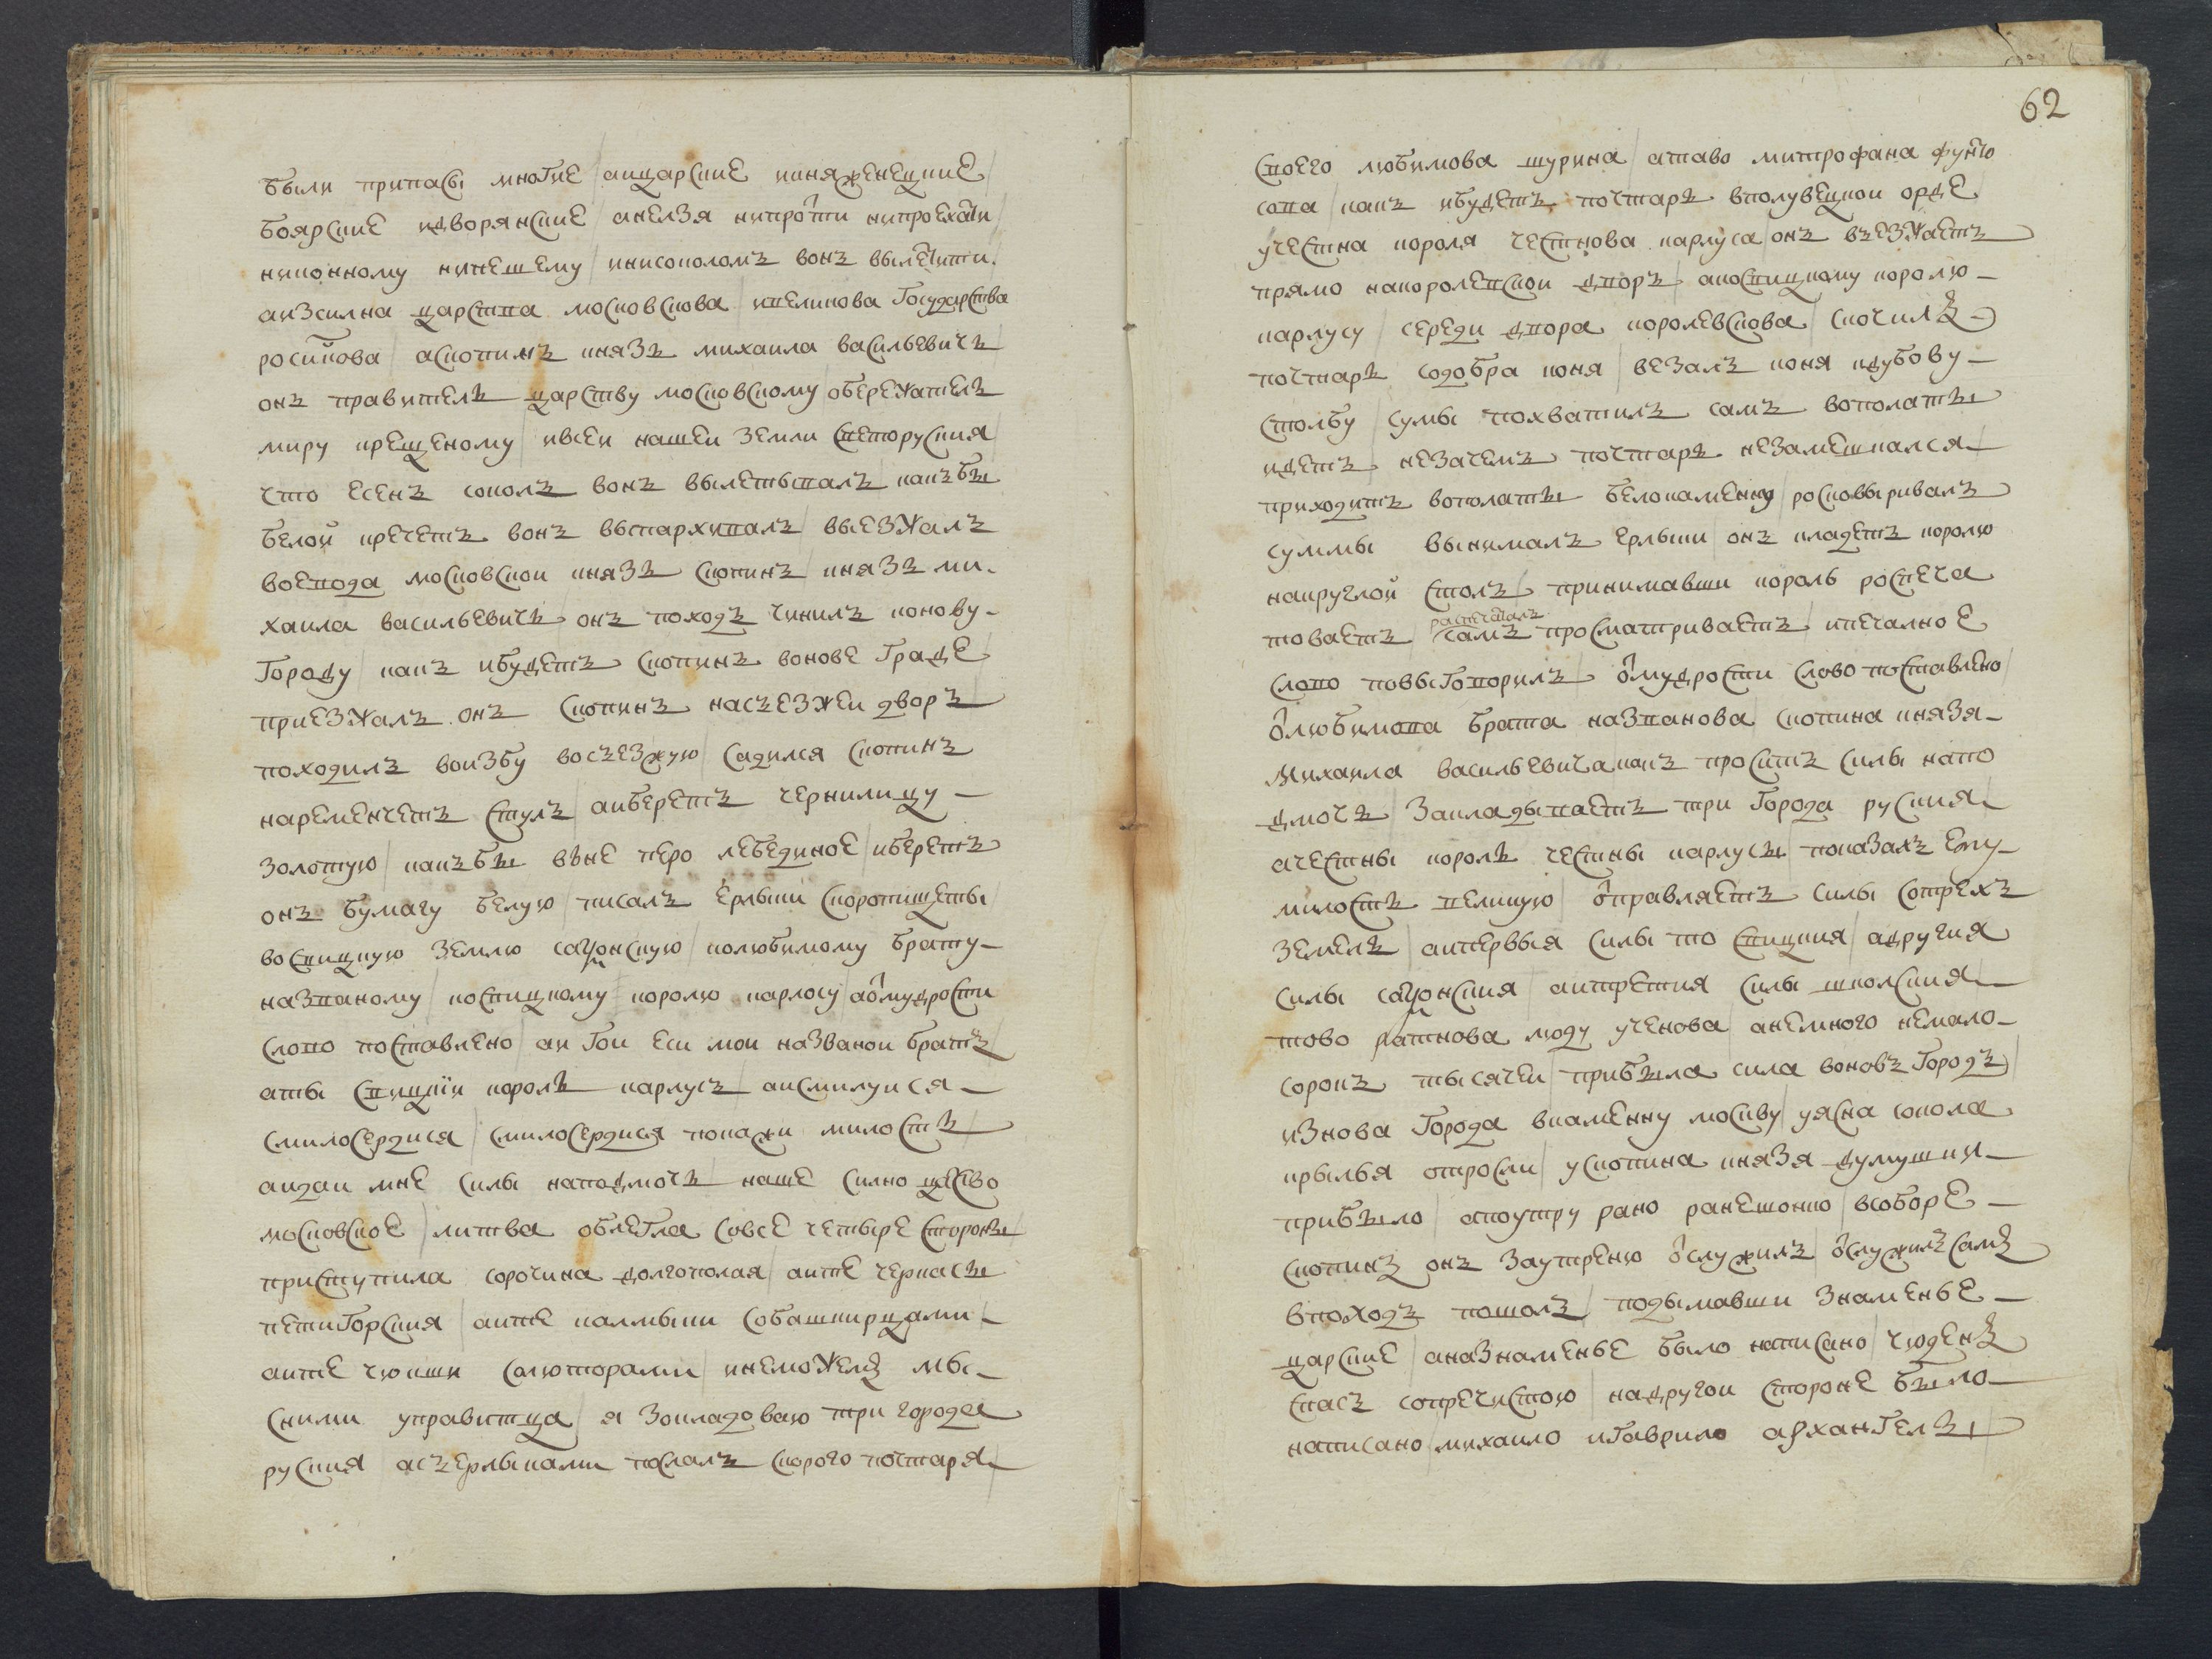 были припасы многие / аицарские икняженецкие /
боярские идворянские / анелзя нипроти нипроехати /
никонному нипешему / инисоколомъ вонъ вылетити.
аизсилна царства московскова ивеликова Государства
росииskова / аскопинъ князь михаила васильевичь
онъ правитель царству московскому / обережатель
миру крещеному / ивсеи нашеи земли светоруския /
что есенъ соколъ вонъ вылетывалъ какъбы
белой кречетъ вонъ выпархивалъ / выезжалъ
воевода московскои князь скопинъ / князь ми-
хаила васильевичь онъ походъ чинилъ конову-
Городу / какъ ибудетъ скопинъ вонове Граде
приезжалъ онъ скопинъ насъезжеи дворъ
походилъ воизбу восъезжую / садился скопинъ
наременчетъ стулъ / аиберетъ чернилицу -
золотую / какъбы вьне перо лебединое / иберетъ
онъ бумагу белую / писалъ ерлыки скоропищеты
восвицкую землю саxонскую / колюбимому брату -
названому / косвицкому королю карлосу / аомудрости
слово поставлено / аи Гои еси мои названои братъ
аты свицкіи король карлусъ / аисмилуися -
смилосердися / смилосердися покажи милость /
аидаи мне силы наподмочь / наше силно цство
московское / литва облегла совсе четыре стороны /
приступила сорочина долгополая / аите черкасы
петигорския / аите калмыки собашкирцами -
аите чюкши солюторами / инеможемъ мы -
сними управитца / я зокладоваю три города
руския / асъерлыками послалъ скорого почтаря
62
своего любимова шурина / атаво митрофана фунто
сова / какъ ибудетъ почтарь вполувецкои орде
учестна короля честнова карлуса / онъ възежаетъ
прямо накоролевскои дворъ / акосвицкому королю -
карлусу / середи двора королевскова / скочилъ
почтарь содобра коня / везалъ коня кдубову -
столбу / сумы похватилъ самъ вополаты
идетъ / незачемъ почтарь незамешкался
приходитъ вополаты белокаменну / росковыривалъ
суммы вынималъ ерлыки / онъ кладетъ королю
накруглой столъ / принимавши король роспеча
товаетъ / распечаталъ самъ просматриваетъ / ипечалное
слово повыговорилъ / омудрости слово поставлено /
олюбимова брата названова / скопина князя -
Михаила васильевича какъ проситъ силы напо
дмочь / закладываетъ три Города руския
ачестны король честны карлусы / показалъ ему
милость великую / оправляетъ силы сотрехъ
земель / аипервыя силы то свицкия / адругия
силы саxонския / аитретия силы школския
тово ратнова люду ученова / анемного немало -
сорокъ тысячеи / прибыла сила воновъ Городъ /
изнова Города вкаменну москву / уясна сокола
крылья отросли / ускопина князя думушки -
прибыло / апоутру рано ранешонко / всоборе -
скопинъ онъ заутреню ослужилъ / ослужилъ самъ
впоходъ пошолъ / подымавши знаменье -
царские / аназнаменье было написано / чюденъ
спасъ сопречистою / надругои стороне было
написано / михаило игаврило архангелы /